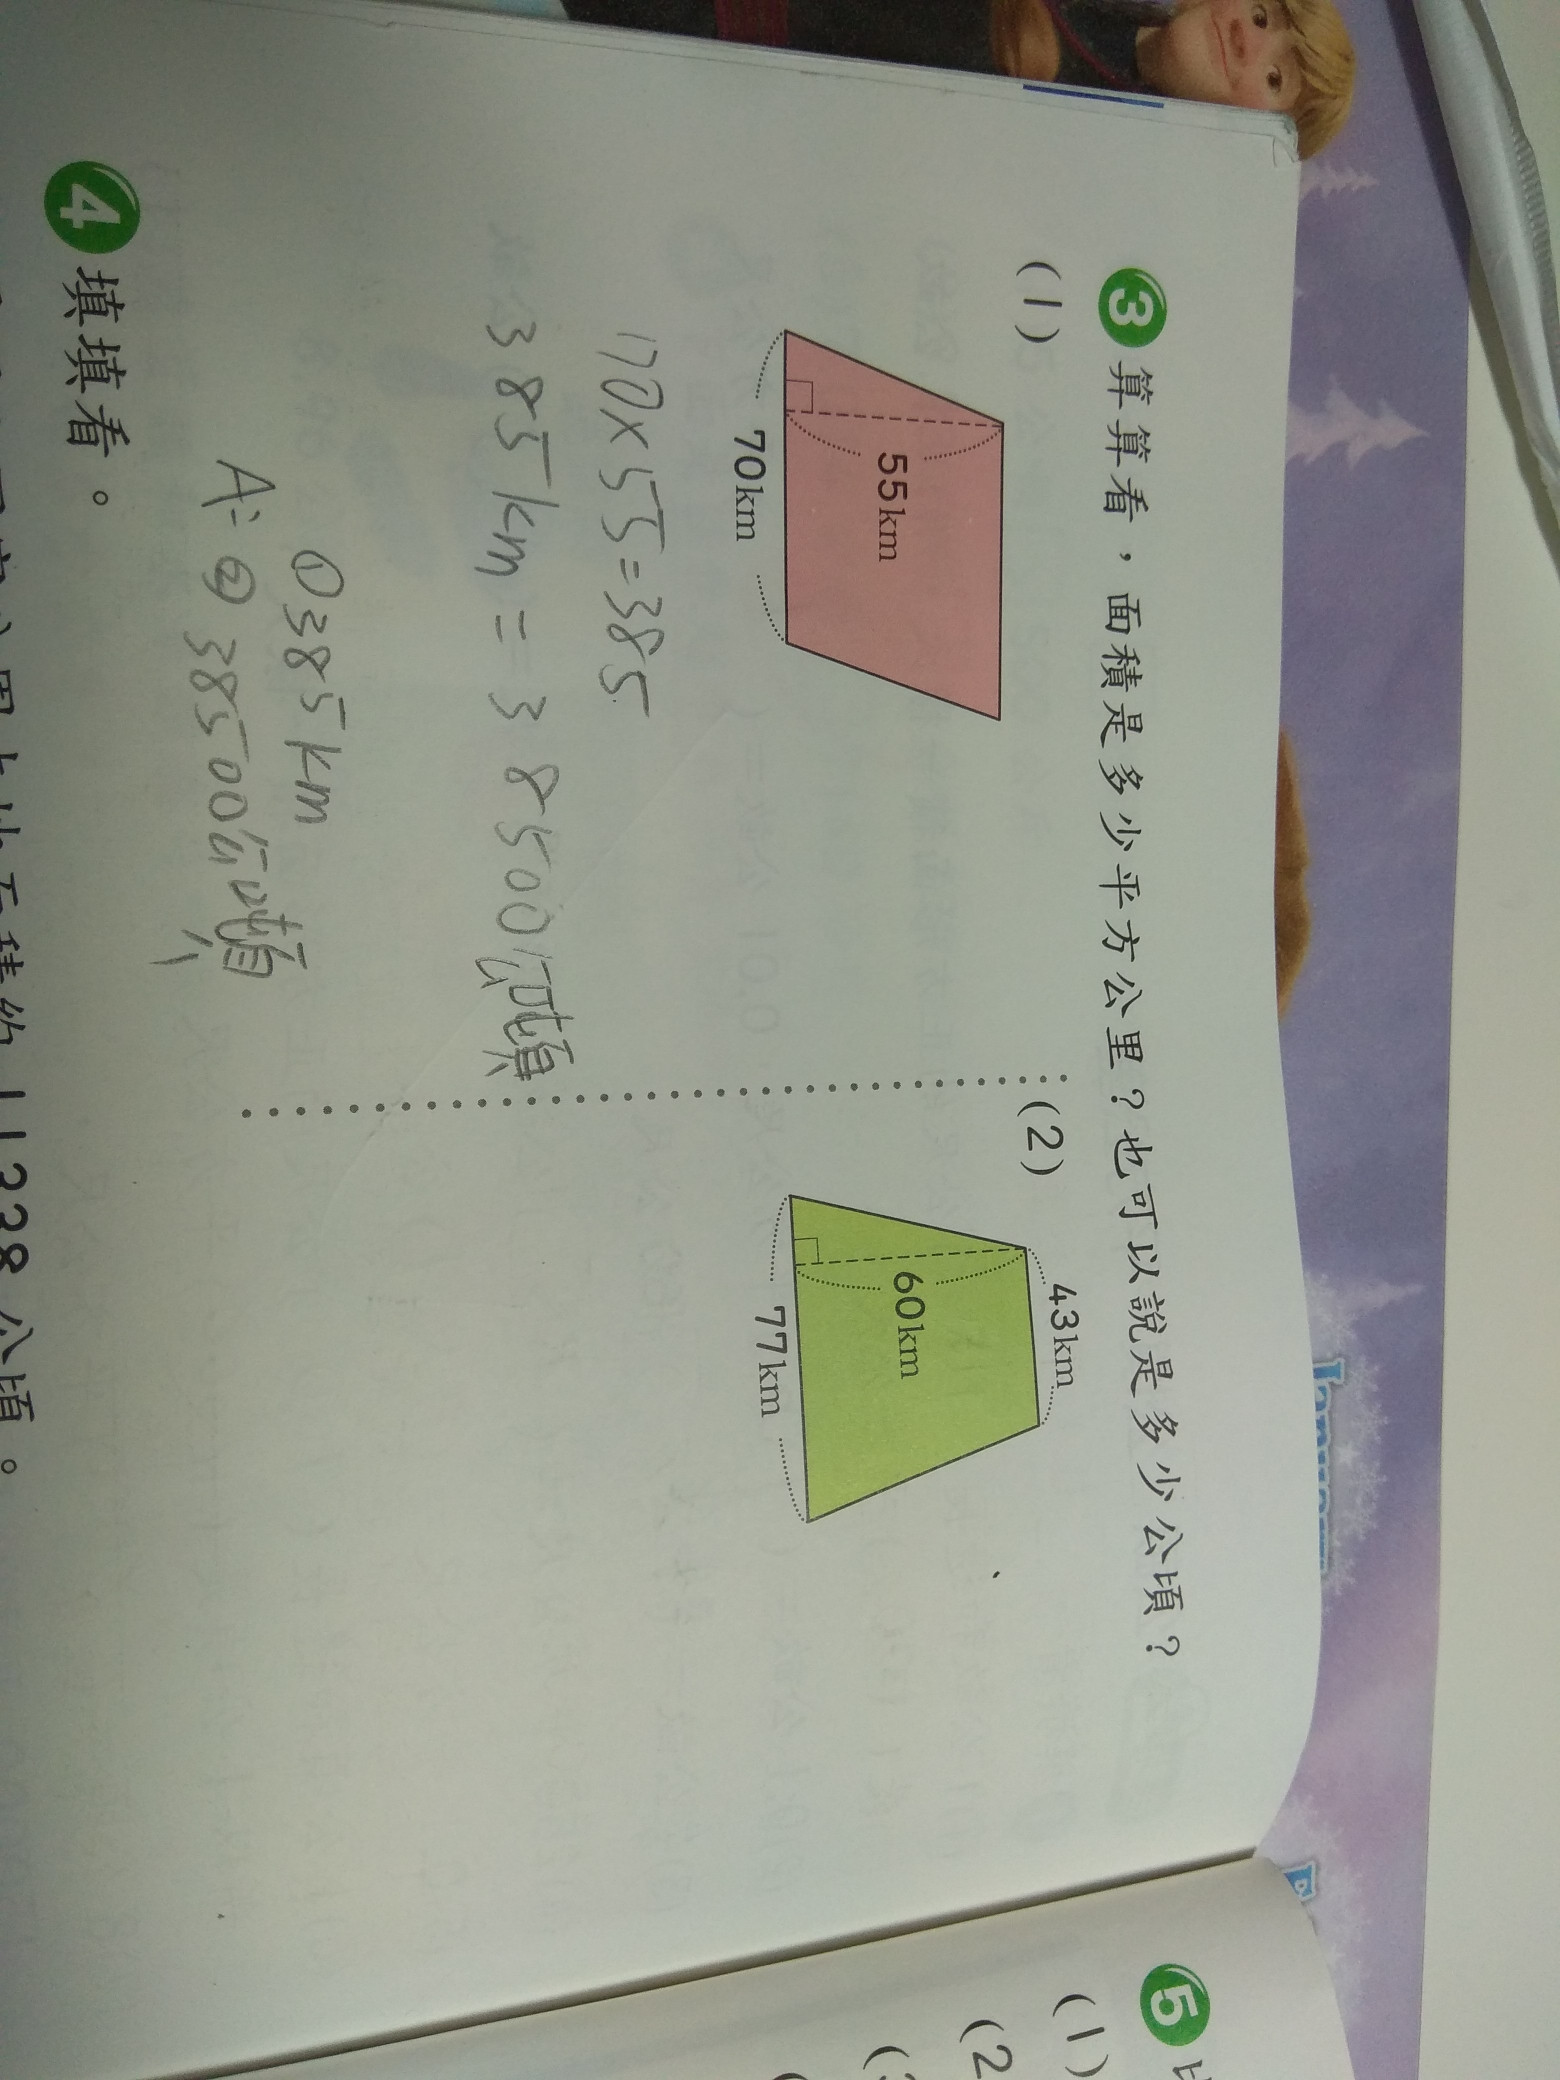 3 算算看，面積是多少平方公里？也可以說是多少公頃？
(1)
55km
70km
70×55=385
385km=38500公頃
①385km
A:②38500公頃
(2)
43km
60km
77km
4 填填看。
11338公頃。
5
(1)
(2